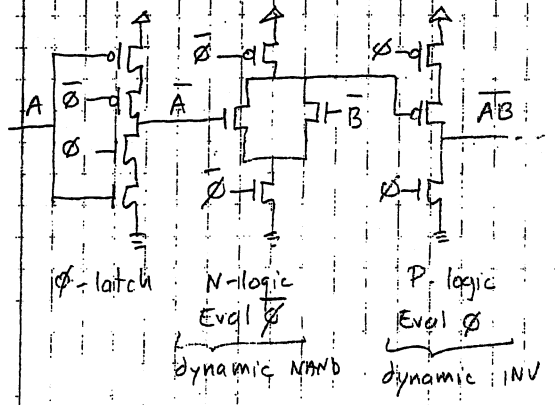 A
φ̅
φ
A̅
φ̅
φ̅
B̅
φ
φ
A̅B̅
φ-latch
N-logic
Eval φ̅
dynamic NAND
P-logic
Eval φ
dynamic INV